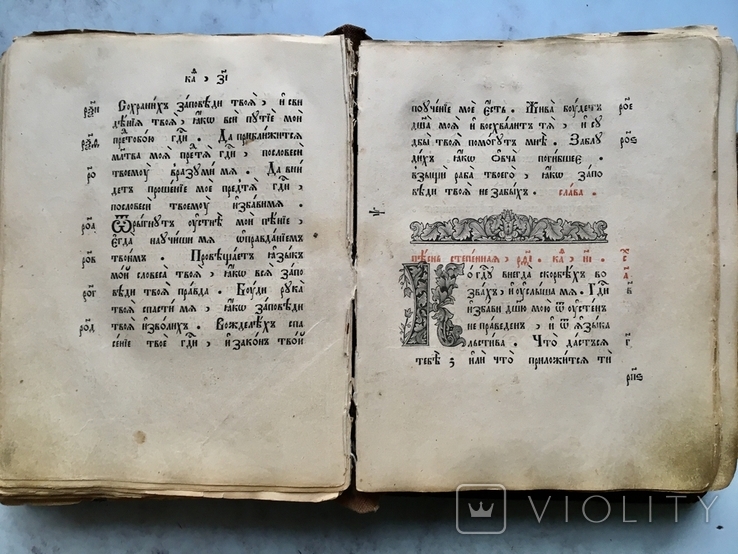 к҃а , з҃і
рѯ҃и Сохрани́хъ за́повѣди твоѧ̀ , и҆ сви
дѣ́нїѧ твоѧ̀ , ꙗ҆́кѡ всѝ путїѐ моѝ
рѯ҃ѳ пред̾ тобо́ю гд҇и . Да прибли́жится
мл҃тва моѧ̀ предъ тѧ̀ гд҇и , по словесѝ
ро҃ твоемꙋ̀ вразꙋмѝ мѧ . Да вни
детъ проше́нїе моѐ предъ тѧ̀ гд҇и ,
по словесѝ твоемꙋ̀ и҆зба́ви мѧ .
ро҃а Ѿры́гнутъ ᲂу҆стнѣ̀ моѝ пѣ́нїе ,
є҆гда̀ наꙋчи́ши мѧ ѡ҆правда́нїем
ро҃в твои̑мъ . Провѣща́етъ ꙗ҆зы́къ
мо́й словеса̀ твоѧ̀ , ꙗ҆́кѡ всѧ̀ за́по
ро҃г вѣди твоѧ̀ пра́вда . Бꙋ́ди рꙋка̀
твоѧ̀ спастѝ мѧ , ꙗ҆́кѡ за́повѣди
ро҃д твоѧ̀ и҆зво́лихъ . Вожделѣ́хъ спа
се́нїе твоѐ гд҇и , и҆ зако́нъ тво́й
поꙋче́нїе моѐ є҆́сть . Жива̀ бꙋ́детъ ро҃е
дш҃а моѧ̀ и҆ восхва́литъ тѧ̀ , и҆ сꙋ
дбы̀ твоѧ̀ помо́гутъ мнѣ̀ . Заблꙋ ро҃ѕ
ди́хъ ꙗ҆́кѡ ѻ҆вча̀ поги́бшее .
взыщѝ раба̀ твоего̀ , ꙗ҆́кѡ за́по
вѣди твоѧ̀ не забы́хъ . сла́ва .
Пѣ́снь степе́нная , рѳ҃і . к҃а , и҃і .
Ко гд҇ꙋ внегда̀ скорбѣ́хъ во
зва́хъ , и҆ ᲂу҆слы́ша мѧ . Гд҇и в҃
и҆зба́ви дш҃ꙋ мою̀ ѿ ᲂу҆сте́нъ
непра́веденъ , и҆ ѿ ꙗ҆зы́ка
льсти́ва . Что̀ да́стъся г҃
тебѣ̀ , и҆лѝ что̀ приложи́тся тѝ
VIOLITY